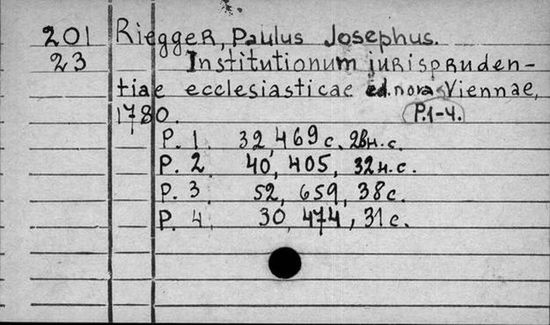 201 Riegger, Paulus Josephus.
23 Institutionum jurispruden-
tiae ecclesiasticae ed. nova Viennae,
1780. P. 1-4.
P. 1. 32, 469 с. 28 н.с.
P. 2 40, 405, 32 н.с.
P. 3 52, 659, 38 с.
P. 4. 30, 474, 31 с.